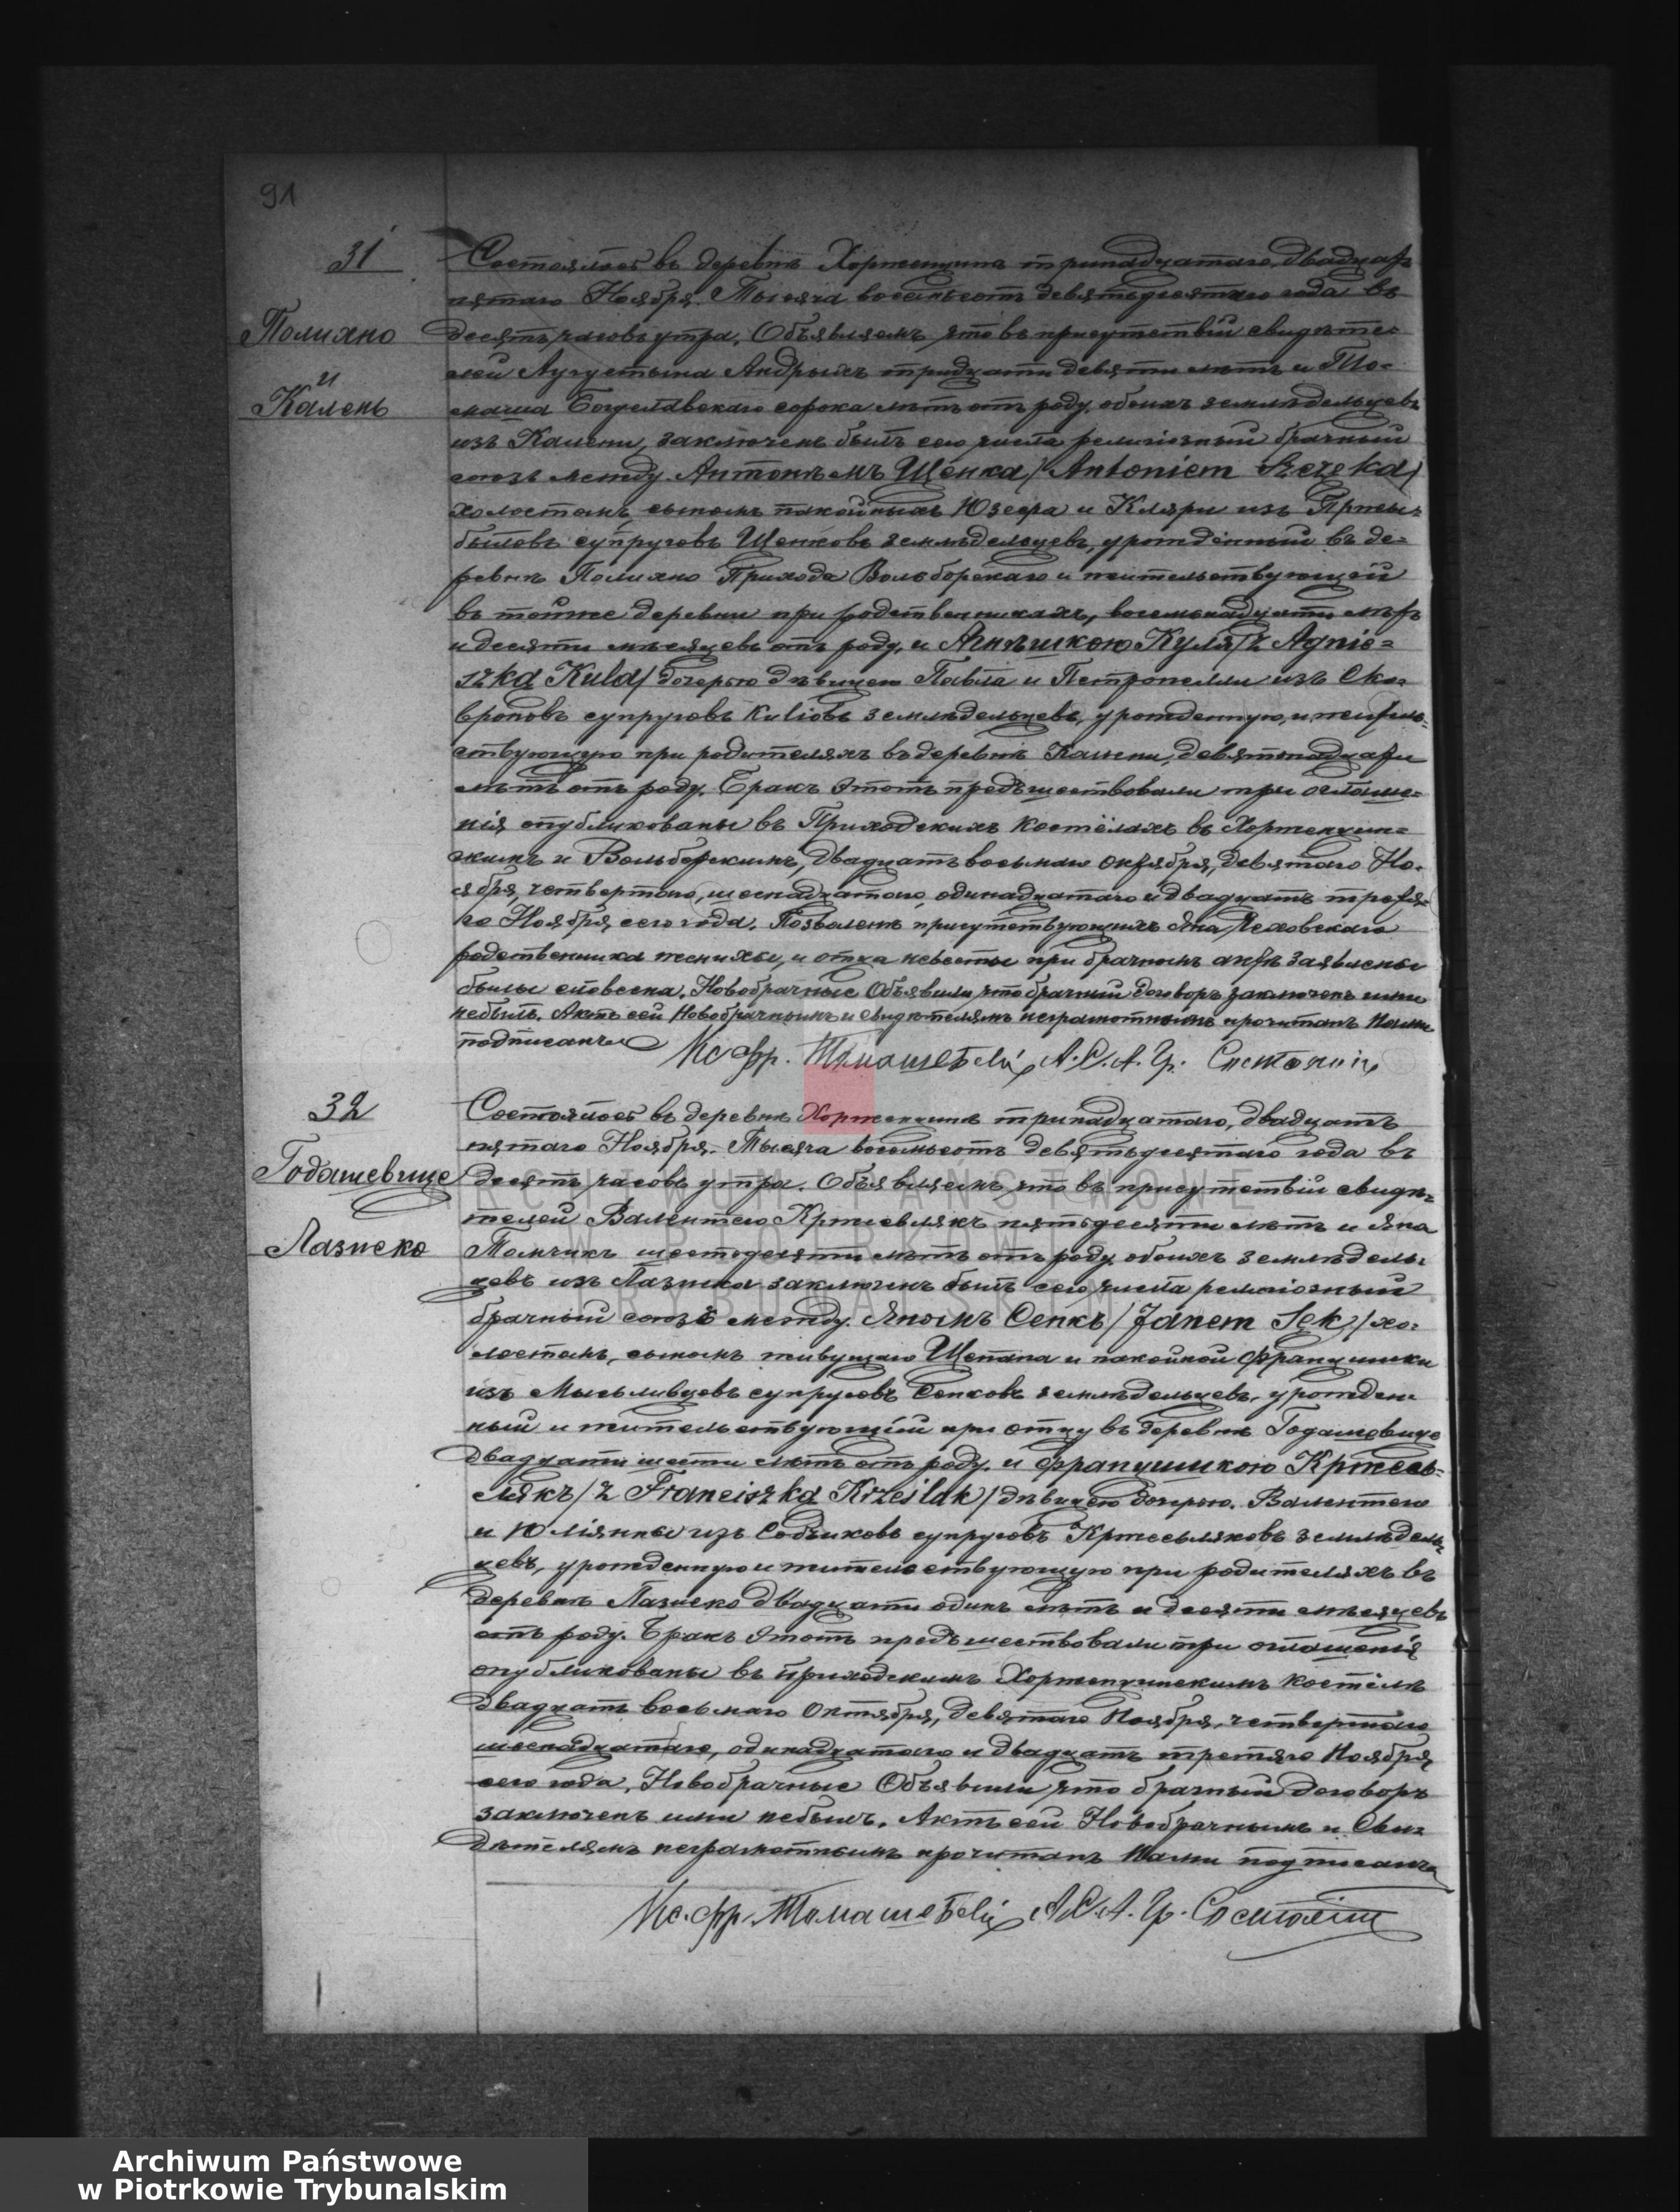 91
31
Состоялось въ деревнѣ Хорженцинѣ тринадцатаго, двадцать
пятаго Ноября Тысяча восемьсотъ девятьдесятаго года въ
Полихно
десять часовъ утра. Объявляемъ что въ присутствіи свидѣте-
лей Аугустына Андрыхъ тридцати девяти лѣтъ и То-
и
Калень
маша Богуславскаго сорока лѣтъ отъ роду, обоихъ земледѣльцевъ
изъ Калени, заключенъ былъ сего числа религіозный брачный
союзъ между Антонѣмъ Щенка /Antoniem Szczęka/
холостымъ, сыномъ покойныхъ Юзефа и Кляры изъ Пржи-
быловъ супруговъ Щенковъ земледѣльцевъ, урожденный въ де-
ревнѣ Полихно Прихода Вольборскаго и жительствующей
въ тойже деревни при родственникахъ, восемьнадцати лѣтъ
и десяти мѣсяцевъ отъ роду, и Агнѣшкою Куля /z Agnie-
szką Kulą/ дочерью дѣвицею Павла и Петронелли изъ Ско-
вроновъ супруговъ Kuliовъ земледѣльцевъ, урожденную, и житель-
ствующую при родителяхъ въ деревнѣ Калени, девятнадцати
лѣтъ отъ роду. Бракъ этотъ предшествовали три оглаше-
нія опубликованы въ Приходскихъ Костёлахъ въ Хорженцин-
скимъ и Вольборскимъ, двадцать восьмаго Октября, девятаго Но-
ября, четвертаго, шеснадцатаго, одинадцатаго и двадцать третья-
го Ноября сего года. Позволенѣ присутствующихъ Яна
родственника жениха, и отца невесты при брачномъ актѣ заявлены
былы словесна. Новобрачные Объявили что брачный договоръ заключенъ ими
небылъ. Актъ сей Новобрачнымъ и свидѣтелямъ неграмотнымъ прочитанъ Нами
подписанъ
Кс. Фр. Томашевскій А.С.А.Гр. Състояніи
32
Состоялось въ деревнѣ Хорженцинѣ тринадцатаго, двадцать
пятаго Ноября. Тысяча восемьсотъ девятьдесятаго года въ
Годашевице
десять часовъ утра. Объявляемъ что въ присутствіи свидѣ-
телей Валентего Кржесьлякъ пятьдесяти лѣтъ и Яна
Лазнеко
Томчикъ шестодесяти лѣтъ отъ роду, обоихъ земледѣль-
цевъ изъ Лазнека заключенъ былъ сего числа религіозный
брачный союзъ между Яномъ Сенкъ /Janem Sęk/ хо-
лостымъ, сыномъ живущаго Щепана и покойной Францишки
изъ Мысьливцовъ супруговъ Сенковъ земледѣльцевъ, урожден-
ный и жительствующій при отцу въ деревнѣ Годашевице
двадцати шести лѣтъ отъ роду, и Францишкою Кржесь-
лякъ /z Franciszką Krześlak/ дѣвицею дочерью Валентего
и Юліянны изъ супруговъ Кржесьляковъ земледѣль-
цевъ, урожденную и жительствующую при родителяхъ въ
деревнѣ Лазнеко двадцати одинъ лѣтъ и десяти мѣсяцевъ
отъ роду. Бракъ этотъ предшествовали три оглашенія
опубликованы въ Приходскимъ Хорженцинскимъ Костёлѣ
двадцать восьмаго Октября, девятаго Ноября, четвертаго
шеснадцатаго, одинадцатаго и двадцать третяго Ноября
сего года, Новобрачные Объявили что брачный договоръ
заключенъ ими небылъ. Актъ сей Новобрачнымъ и Сви-
дѣтелямъ неграмотнымъ прочитанъ Нами подписанъ
Кс. Фр. Томашевскій А.С.А.Гр. Състояніи
ARCHIWUM PAŃSTWOWE
W PIOTRKOWIE
TRYBUNALSKIM
Archiwum Państwowe
w Piotrkowie Trybunalskim